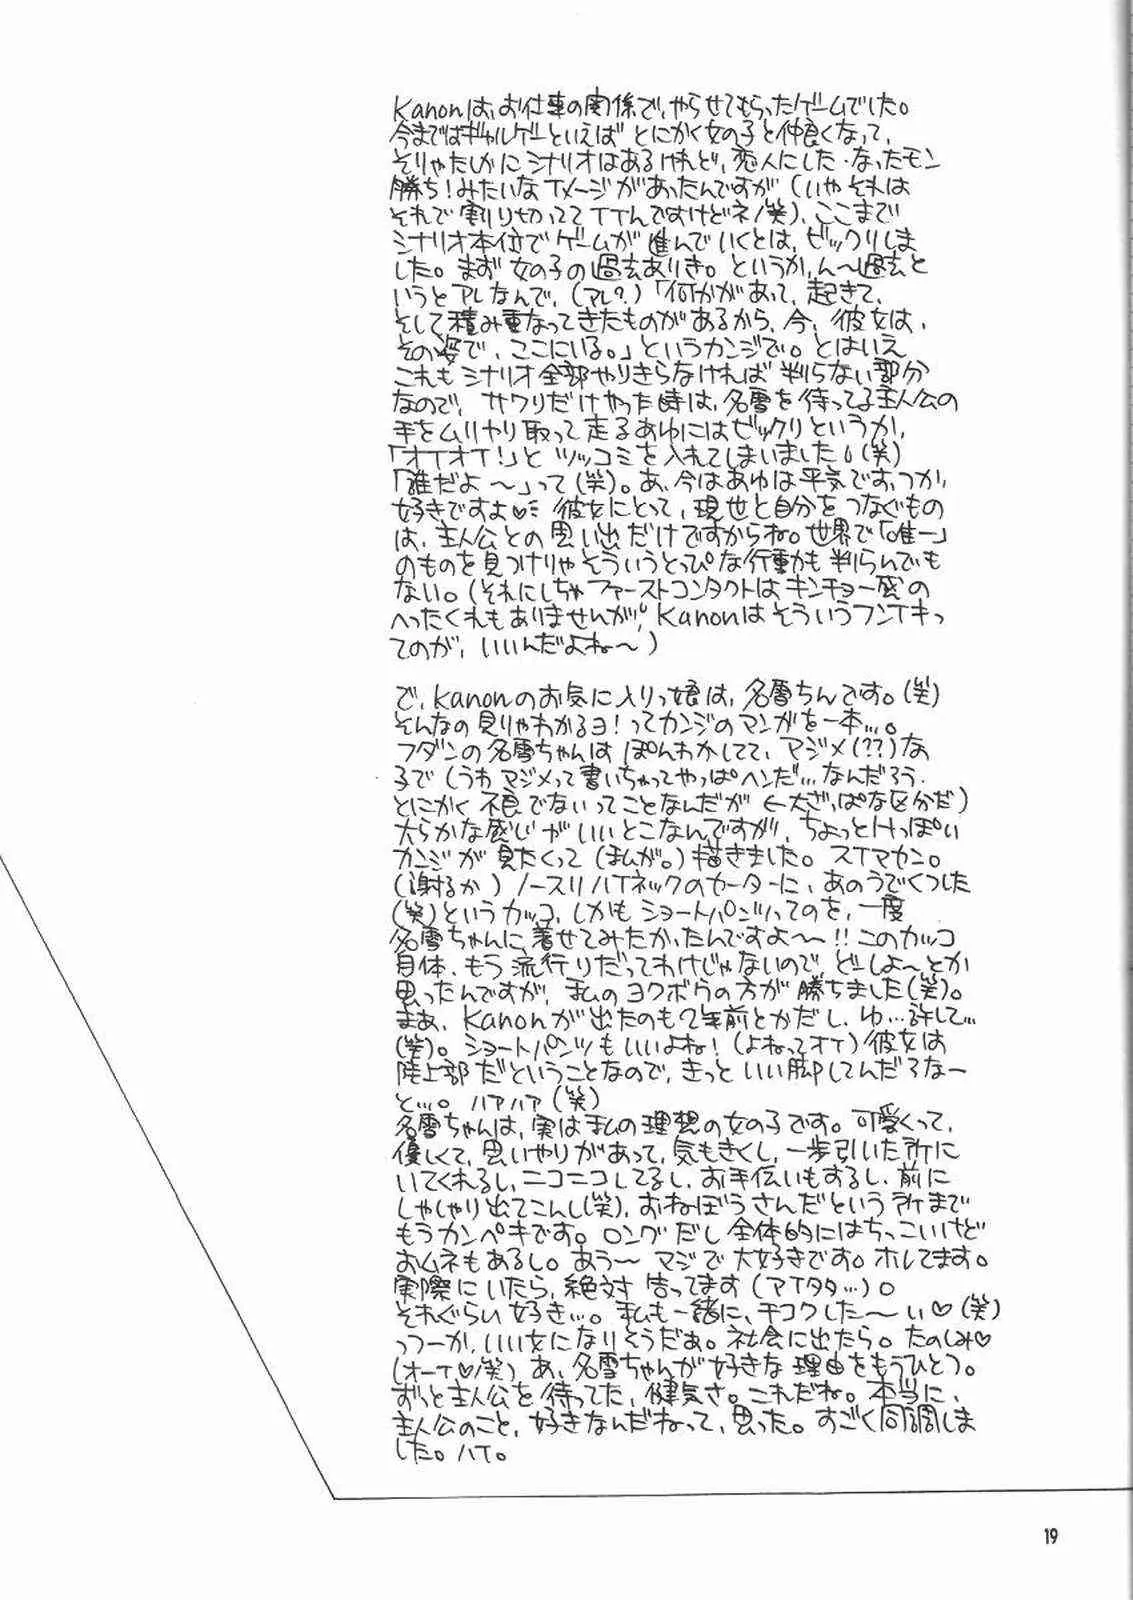 Kanonは、お仕事の関係で、やらせてもらったゲームでした。
今まではギャルゲーといえば とにかく女の子と仲良くなって、
そりゃたしかに シナリオはあるけれど、恋人にした・なったモン
勝ち！みたいなイメージがあったんですが（いやそれは
それで割り切っててイイんですけどネ／笑）、ここまで
シナリオ本位でゲームが進んでいくとは、ビックリしま
した。まず女の子の過去ありき。というか、ん～過去と
いうとアレなんで、（アレ?）「何かがあって、起きて、
そして積み重なってきたものがあるから、今、彼女は、
その姿で、ここにいる。」というカンジで。とはいえ
これもシナリオ全部やりきらなければ 判らない部分
なので、サワリだけやった時は、名雪を待ってる主人公の
手をムリヤリ取って走るあゆにはビックリというか、
「オイオイ！」と ツッコミを入れてしまいました。（笑）
「誰だよ～」って（笑）。あ、今はあゆは平気です。つか、
好きですよ♡ 彼女にとって、現世と自分をつなぐもの
は、主人公との思い出だけですからね。世界で「唯一」
のものを見つけりゃそういうとっぴな行動も判らんでも
ない。（それにしちゃファーストコンタクトはキンチョー感の
へったくれもありませんが。Kanonはそういうフンイキっ
てのが、いいんだよね～）

で、Kanonのお気に入りっ娘は、名雪ちんです。（笑）
そんなの見りゃわかるヨ！ってカンジのマンガを一本…。
フダンの名雪ちゃんは ぽんわかしてて、マジメ（??）な
子で（うわ マジメって書いちゃってやっぱヘンだ…なんだろう、
とにかく 不良でないってことなんだが ←大ざっぱな区分だ）
大らかな感じがいいとこなんですが、ちょっとHっぽい
カンジが見たくって（まんが。）描きました。スイマセン。
（謝るか）ノースリハイネックのセーターに、あのうでくつした
（笑）というカッコ、しかもショートパンツってのを、一度
名雪ちゃんに着せてみたかったんですよ～!!このカッコ
自体、もう流行りだってわけじゃないので、どーしよ～とか
思ったんですが、私のヨクボウの方が勝ちました（笑）。
まあ、Kanonが出たのも2年前とかだし、ゆ…許して…
（笑）。ショートパンツもいいよね！（よねってオイ）彼女は
陸上部だということなので、きっといい脚してんだろなー
と…。ハアハア（笑）
名雪ちゃんは、実は私の理想の女の子です。可愛くって、
優しくて、思いやりがあって、気もきくし、一歩引いた所に
いてくれるし、ニコニコしてるし、お手伝いもするし、前に
しゃしゃり出てこんし（笑）、おねぼうさんだという所まで
もうカンペキです。ロングだし 全体的にはちっこいけど
おムネもあるし。あう～ マジで大好きです。ホレてます。
実際にいたら、絶対 告ってます（アイタタ…）。
それぐらい好き…。私も一緒に、チコクした～い♡（笑）
っつーか、いい女になりそうだぁ。社会に出たら。たのしみ♡
（オーイ♡／笑）あ、名雪ちゃんが好きな理由をもうひとつ。
ずっと主人公を待ってた、健気さ。これだね。本当に、
主人公のこと、好きなんだねって、思った。すごく同調しま
した。ハイ。
19